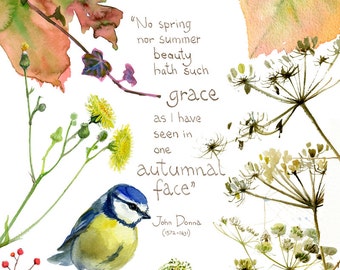 "No spring
nor summer
beauty
hath such
grace
as I have
seen in
one
autumnal
face"
John Donna
(1572-1631)